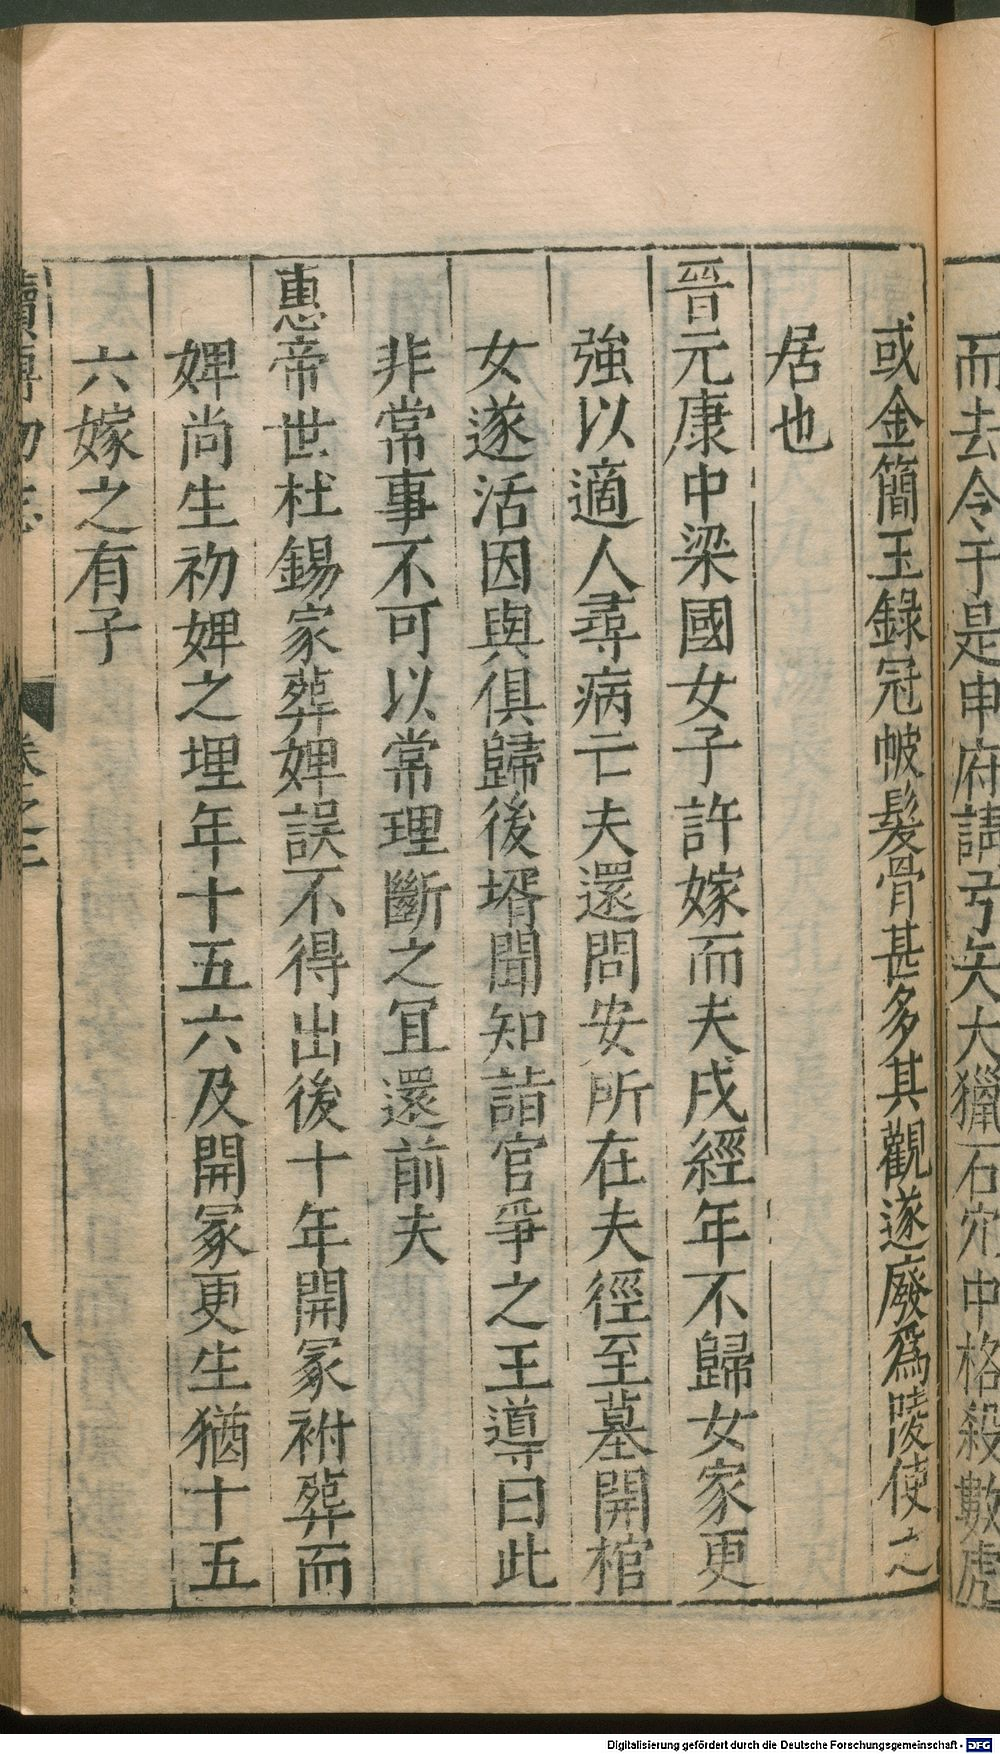 而去今于是申府請弓矢大獵石穴中格殺數虎
或金簡玉錄冠帔髮骨甚多其觀遂廢爲陵使之
居也
晉元康中梁國女子許嫁而夫戍經年不歸女家更
強以適人尋病亡夫還問安所在夫徑至墓開棺
女遂活因與俱歸後壻聞知詣官爭之王導曰此
非常事不可以常理斷之冝還前夫
惠帝世杜錫家葬婢誤不得出後十年開冢祔葬而
婢尚生初婢之埋年十五六及開冢更生猶十五
六嫁之有子
續博物志 卷之三 八
Digitalisierung gefördert durch die Deutsche Forschungsgemeinschaft - DFG